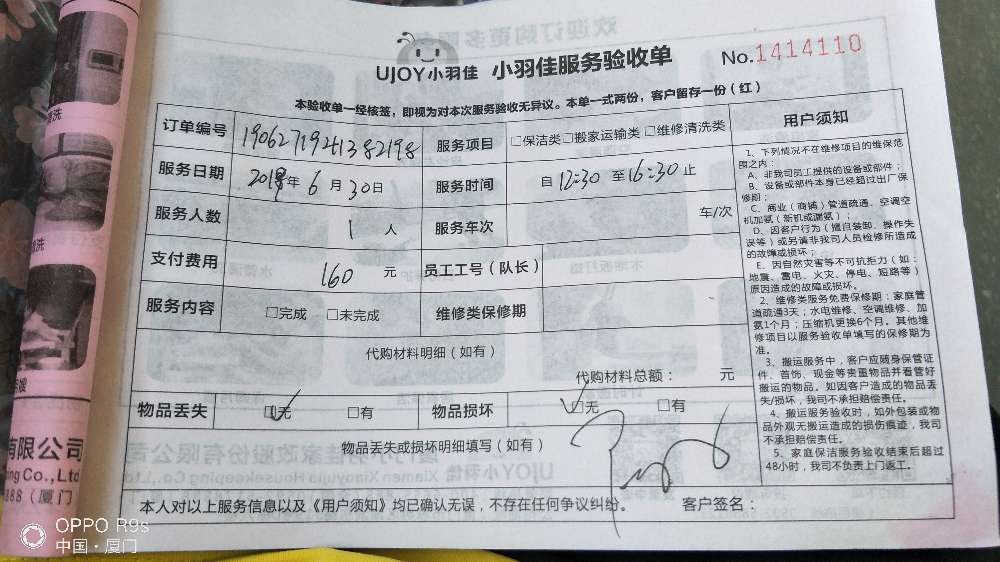 UJOY小羽佳 小羽佳服务验收单 No.1414110
本验收单一经核签，即视为对本次服务验收无异议。本单一式两份，客户留存一份（红）
订单编号 1906271941382198 服务项目 □保洁类□搬家运输类□维修清洗类
服务日期 2019年6月30日 服务时间 自12:30至16:30止
服务人数 1人 服务车次 车/次
支付费用 160元 员工工号（队长）
服务内容 □完成 □未完成 维修类保修期
代购材料明细（如有）
代购材料总额： 元
物品丢失 ☑无 □有 物品损坏 ☑无 □有
物品丢失或损坏明细填写（如有）
本人对以上服务信息以及《用户须知》均已确认无误，不存在任何争议纠纷。 客户签名：
用户须知
1、下列情况不在维修项目的维保范
围之内：
A、非我司员工提供的设备或部件；
B、设备或部件本身已经超过出厂保
修期；
C、商业（商铺）管道疏通、空调空
机加氨（新机或漏氨）；
D、因客户行为（擅自装卸、操作失
误等）或另请非我司人员检修所造成
的故障或损坏；
E、因自然灾害等不可抗拒力（如：
地震、雷电、火灾、停电、短路等）
原因造成的故障或损坏。
2、维修类服务免费保修期：家庭管
道疏通3天；水电维修、空调维修、加
氨1个月；压缩机更换6个月。其他维
修项目以服务验收单填写的保修期为
准。
3、搬运服务中，客户应随身保管证
件、首饰、现金等贵重物品并看管好
搬运的物品。如因客户造成的物品丢
失/损坏，我司不承担赔偿责任。
4、搬运服务验收时，如外包装或物
品外观无搬运造成的损伤痕迹，我司
不承担赔偿责任。
5、家庭保洁服务验收结束后超过
48小时，我司不负责上门返工。
有限公司
ng Co.,Ltd
888（厦门
OPPO R9s
中国·厦门